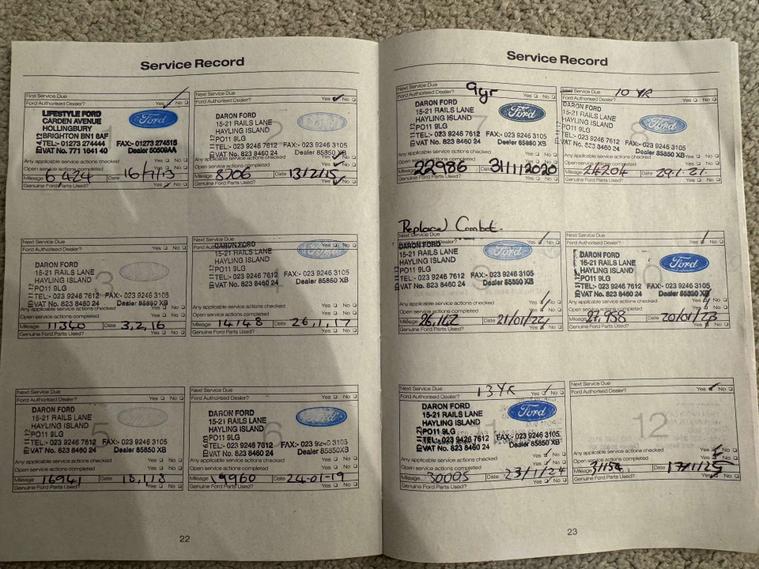 Service Record
First Service Due
Ford Authorised Dealer? Yes No
LIFESTYLE FORD
CARDEN AVENUE
HOLLINGBURY
BRIGHTON BN1 8AF
TEL:- 01273 274444 FAX:- 01273 274515
VAT No. 771 1841 40
Any applicable service actions checked Yes No
Open service actions completed Yes No
Mileage 6424 Date
Genuine Ford Parts Used? Yes No
Next Service Due
Ford Authorised Dealer? Yes No
DARON FORD
15-21 RAILS LANE
HAYLING ISLAND
PO11 9LG
TEL:- 023 9246 7612 FAX:- 023 9246 3105
VAT No. 823 8460 24 Dealer 85850 XB
Any applicable service actions checked Yes No
Open service actions completed Yes No
Mileage 8706 Date 13/2/15
Genuine Ford Parts Used? Yes No
Next Service Due
Ford Authorised Dealer? Yes No
3
DARON FORD
15-21 RAILS LANE
HAYLING ISLAND
PO11 9LG
TEL:- 023 9246 7612 FAX:- 023 9246 3105
VAT No. 823 8460 24 Dealer 85850 XB
Any applicable service actions checked Yes No
Open service actions completed Yes No
Mileage 11340 Date 3,2,16
Genuine Ford Parts Used? Yes No
Next Service Due
Ford Authorised Dealer? Yes No
DARON FORD
15-21 RAILS LANE
HAYLING ISLAND
PO11 9LG
TEL:- 023 9246 7612 FAX:- 023 9246 3105
VAT No. 823 8460 24 Dealer 85850 XB
Any applicable service actions checked Yes No
Open service actions completed Yes No
Mileage 14148 Date 26,1,17
Genuine Ford Parts Used? Yes No
Next Service Due
Ford Authorised Dealer? Yes No
5
DARON FORD
15-21 RAILS LANE
HAYLING ISLAND
PO11 9LG
TEL:- 023 9246 7612 FAX:- 023 9246 3105
VAT No. 823 8460 24 Dealer 85850 XB
Any applicable service actions checked Yes No
Open service actions completed Yes No
Mileage 16941 Date
Genuine Ford Parts Used? Yes No
Next Service Due
Ford Authorised Dealer? Yes No
6
DARON FORD
15-21 RAILS LANE
HAYLING ISLAND
PO11 9LG
TEL:- 023 9246 7612 FAX:- 023 9246 3105
VAT No. 823 8460 24 Dealer 85850XB
Any applicable service actions checked Yes No
Open service actions completed Yes No
Mileage 19960 Date 24-01-19
Genuine Ford Parts Used? Yes No
22
Service Record
Next Service Due 9yr
Ford Authorised Dealer? Yes No
7
DARON FORD
15-21 RAILS LANE
HAYLING ISLAND
PO11 9LG
TEL:- 023 9246 7612 FAX:- 023 9246 3105
VAT No. 823 8460 24 Dealer 85850 XB
Any applicable service actions checked Yes No
Open service actions completed Yes No
Mileage 22936 Date 31/1/2020
Genuine Ford Parts Used? Yes No
Next Service Due 10 YR
Ford Authorised Dealer? Yes No
8
DARON FORD
15-21 RAILS LANE
HAYLING ISLAND
PO11 9LG
TEL:- 023 9246 7612 FAX:- 023 9246 3105
VAT No. 823 8460 24 Dealer 85850 XB
Any applicable service actions checked Yes No
Open service actions completed Yes No
Mileage 24204 Date 29.1.21
Genuine Ford Parts Used? Yes No
Replaced
Next Service Due
Ford Authorised Dealer? Yes No
DARON FORD
15-21 RAILS LANE
HAYLING ISLAND
PO11 9LG
TEL:- 023 9246 7612 FAX:- 023 9246 3105
VAT No. 823 8460 24 Dealer 85850 XB
Any applicable service actions checked Yes No
Open service actions completed Yes No
Mileage 26,162 Date 21/01/22
Genuine Ford Parts Used? Yes No
Next Service Due
Ford Authorised Dealer? Yes No
DARON FORD
15-21 RAILS LANE
HAYLING ISLAND
PO11 9LG
TEL:- 023 9246 7612 FAX:- 023 9246 3105
VAT No. 823 8460 24 Dealer 85850 XB
Any applicable service actions checked Yes No
Open service actions completed Yes No
Mileage 27,988 Date 20/01/23
Genuine Ford Parts Used? Yes No
Next Service Due 13 YR
Ford Authorised Dealer? Yes No
DARON FORD
15-21 RAILS LANE
HAYLING ISLAND
PO11 9LG
TEL:- 023 9426 7612 FAX:- 023 9246 3105
VAT No. 823 8460 24 Dealer 85850 XB
Any applicable service actions checked Yes No
Open service actions completed Yes No
Mileage 30005 Date 23/1/24
Genuine Ford Parts Used? Yes No
Next Service Due
Ford Authorised Dealer? Yes No
12
Any applicable service actions checked Yes No
Open service actions completed Yes No
Mileage Date
Genuine Ford Parts Used? Yes No
23